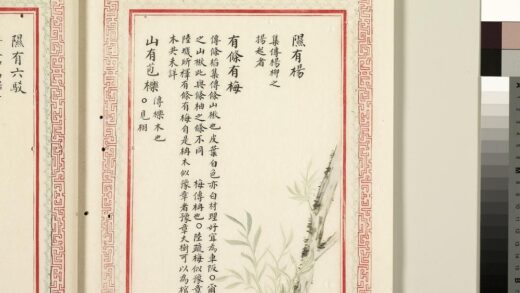 隰有楊
集傳楊柳之
揚起者
有條有梅
傳條稻集傳條山楸也皮葉白色亦白材理好宜為車版○爾
之山楸此與條柚之條不同 梅傳柟也○陸疏梅似豫章
陸璣所釋有條有梅自是柟木似豫章者豫章大樹可以為棺
木共未詳
山有苞櫟 傳櫟木也○見栩
隰有六駁